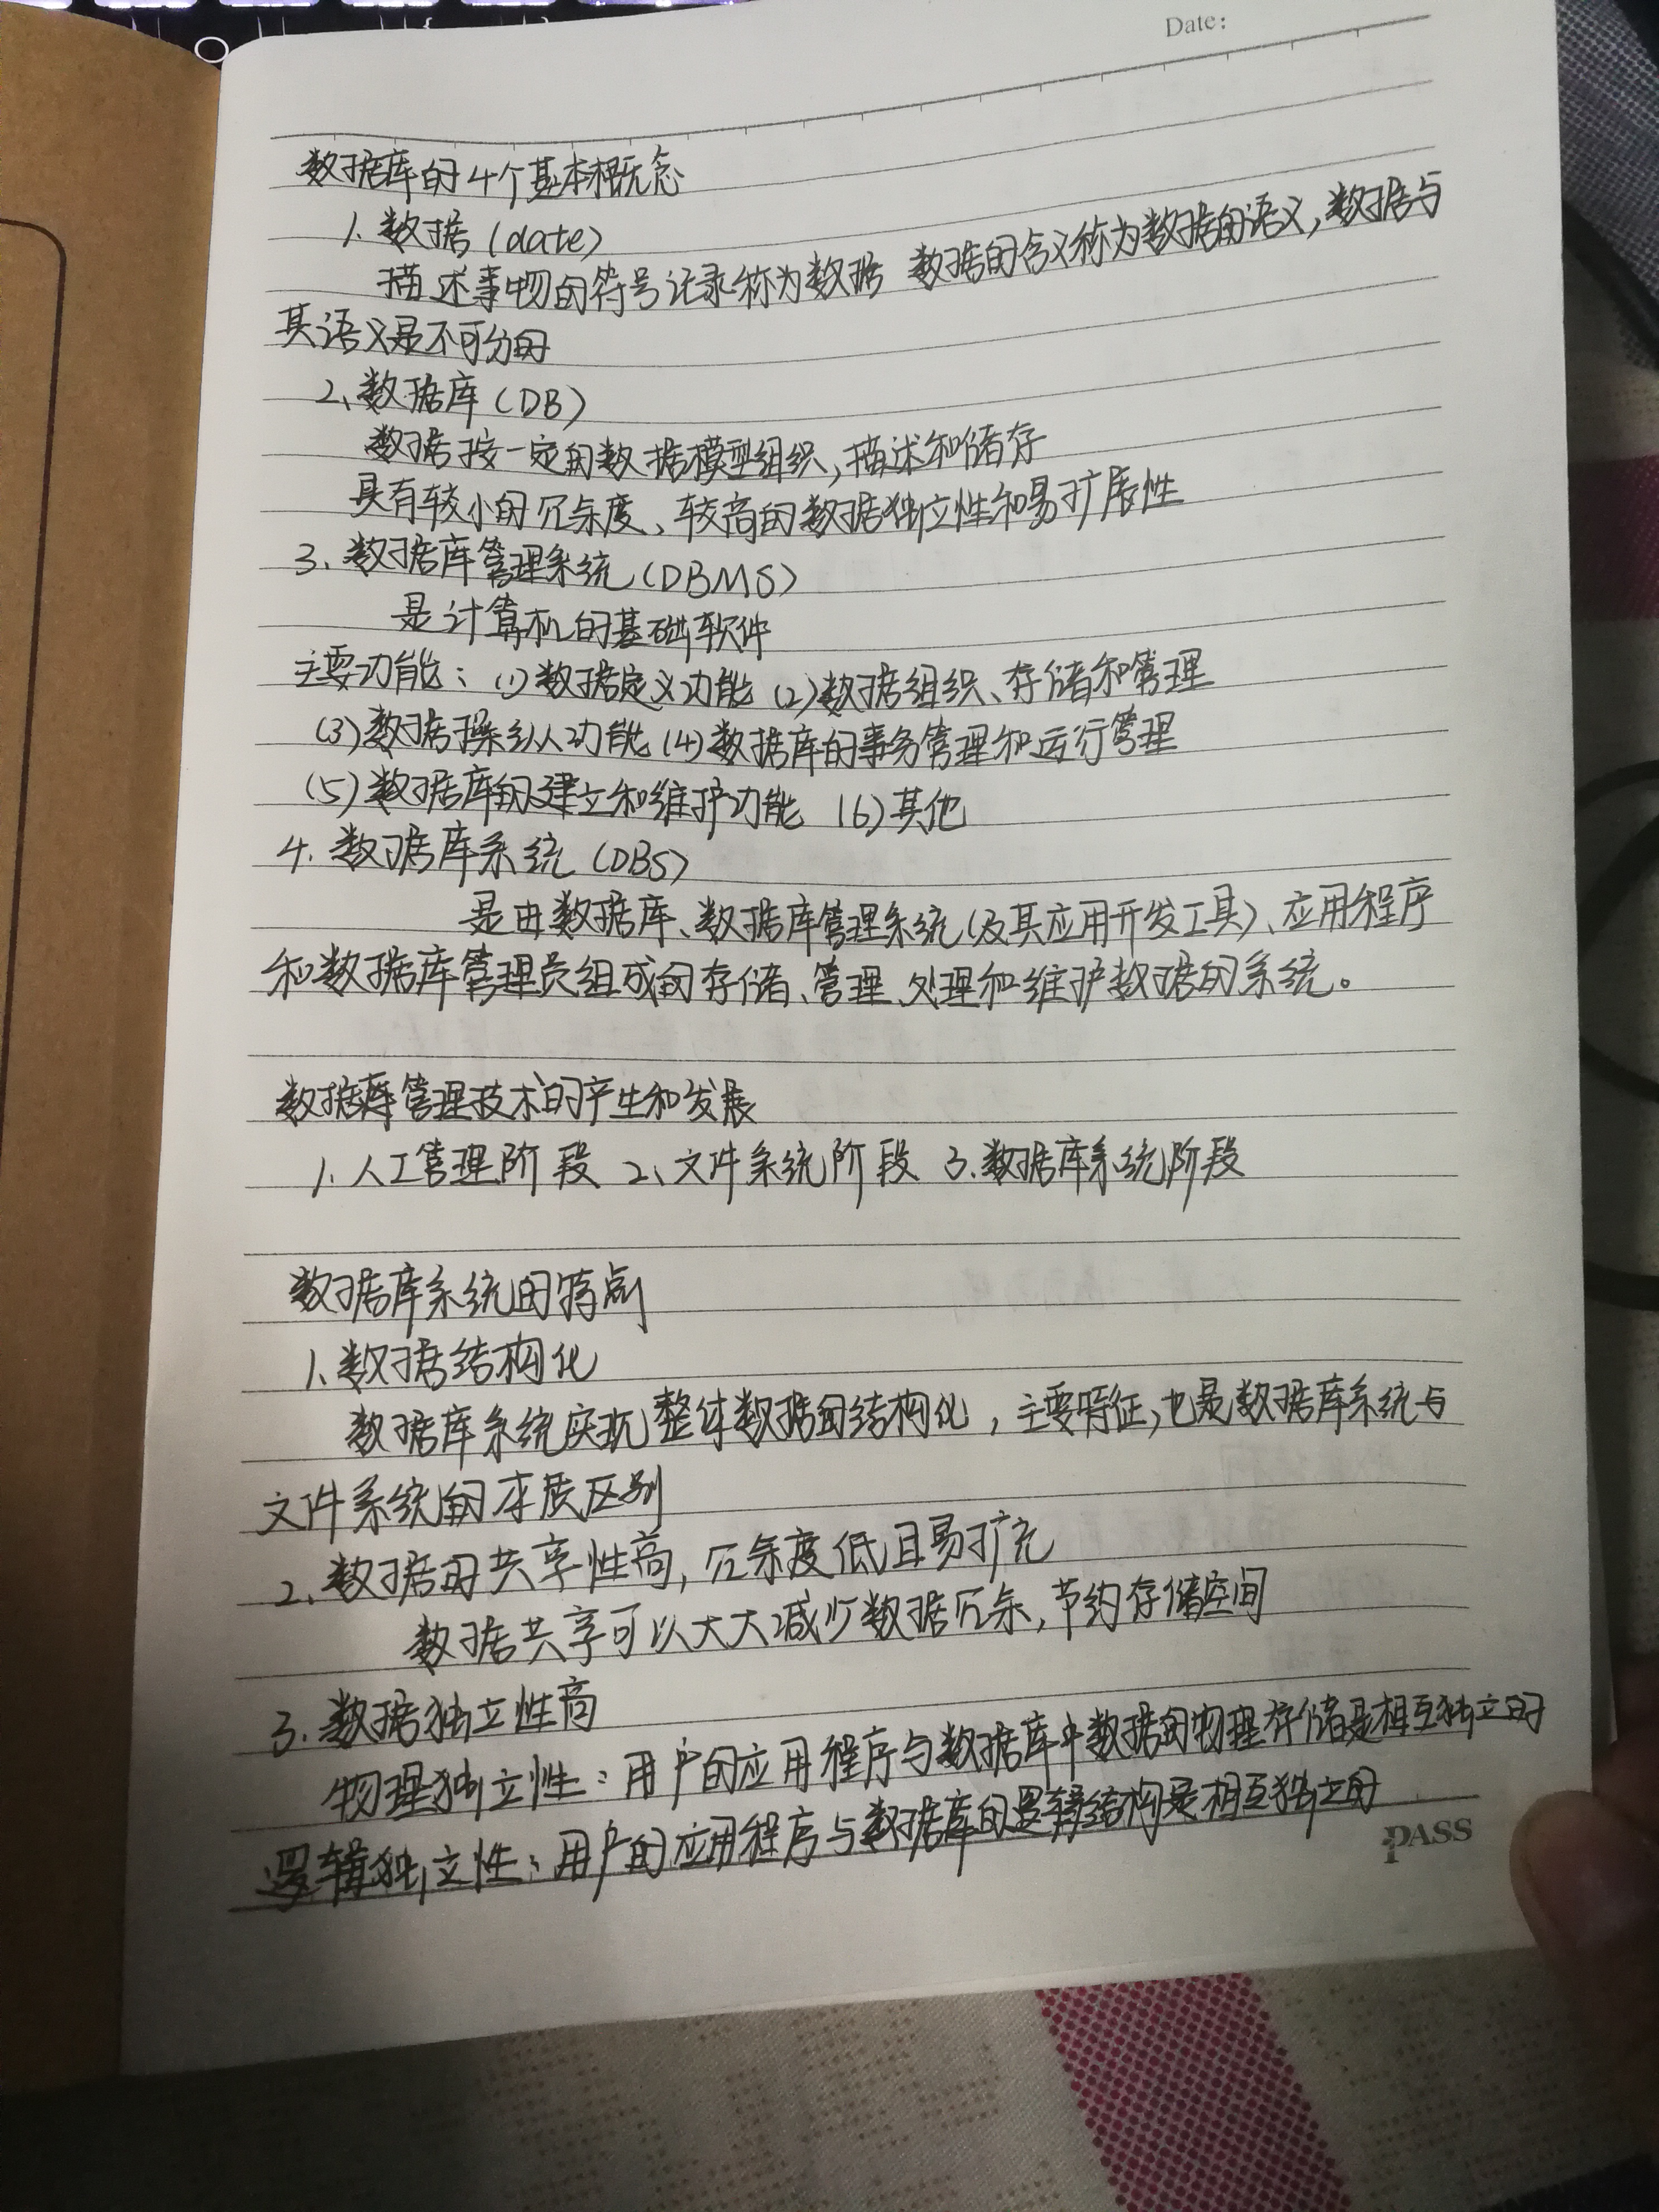 Date:
数据库的4个基本概念
1、数据(date)
描述事物的符号记录称为数据 数据的含义称为数据的语义,数据与
其语义是不可分的
2、数据库(DB)
数据按一定的数据模型组织,描述和储存
具有较小的冗余度、较高的数据独立性和易扩展性
3、数据库管理系统(DBMS)
是计算机的基础软件
主要功能:(1)数据定义功能 (2)数据组织、存储和管理
(3)数据操纵功能 (4)数据库的事务管理和运行管理
(5)数据库的建立和维护功能 (6)其他
4、数据库系统(DBS)
是由数据库、数据库管理系统(及其应用开发工具)、应用程序
和数据库管理员组成的存储、管理、处理和维护数据的系统。
数据库管理技术的产生和发展
1、人工管理阶段 2、文件系统阶段 3、数据库系统阶段
数据库系统的特点
1、数据结构化
数据库系统实现整体数据的结构化,主要特征,也是数据库系统与
文件系统的本质区别
2、数据的共享性高,冗余度低且易扩充
数据共享可以大大减少数据冗余,节约存储空间
3、数据独立性高
物理独立性:用户的应用程序与数据库中数据的物理存储是相互独立的
逻辑独立性:用户的应用程序与数据库的逻辑结构是相互独立的
PASS